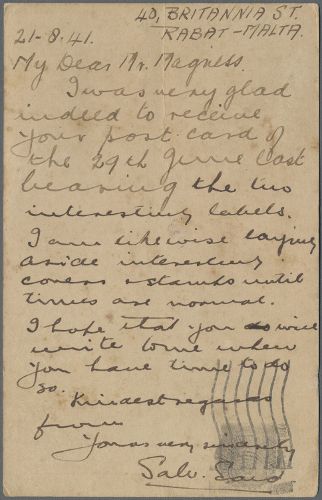 40, BRITANNIA ST.
RABAT - MALTA.
21-8.41.
My Dear Mr. Magness.
I was very glad
indeed to receive
your post card of
the 29th June last
bearing the two
interesting labels.
I am likewise laying
aside interesting
covers & stamps until
times are normal.
I hope that you will
write to me when
you have time to do
so.
Kindest regards
from
Yours very sincerely
Salv. Said